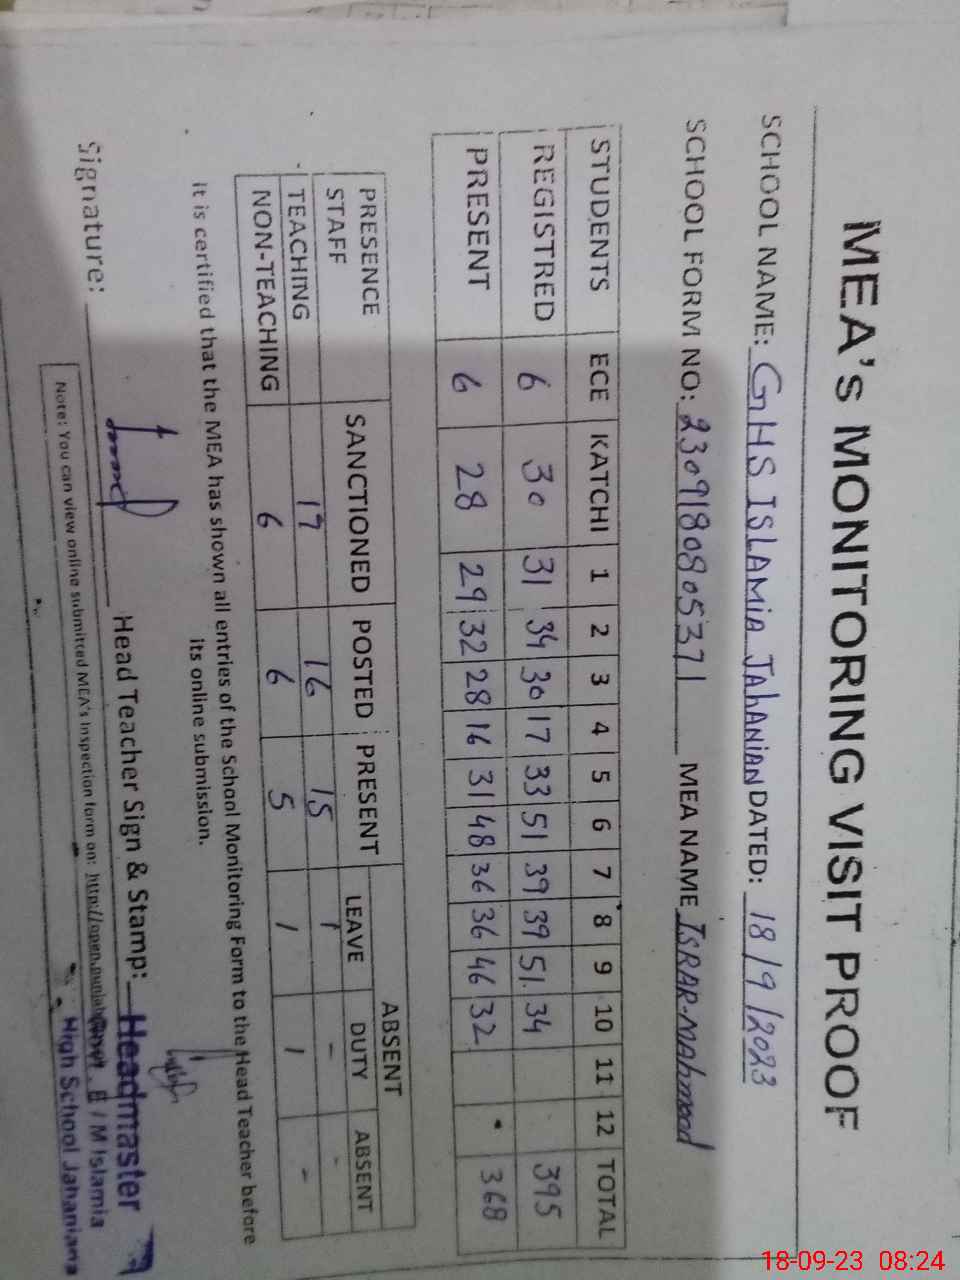 MEA'S MONITORING VISIT PROOF
SCHOOL NAME: GHS ISLAMIA JAhANIAN DATED: 18/9/2023
SCHOOL FORM NO: 23091808053 71 MEA NAME ISRAR-MAhmood
STUDENTS ECE KATCHI 1 2 3 4 5 6 7 8 9 10 11 12 TOTAL
REGISTRED 6 30 31 34 30 17 33 51 39 39 51. 34 395
PRESENT 6 28 29 32 28 16 31 48 36 36 46 32 368
PRESENCE STAFF SANCTIONED POSTED PRESENT ABSENT
LEAVE DUTY ABSENT
TEACHING 17 16 15 1 - -
NON-TEACHING 6 6 5 1 1 -
It is certified that the MEA has shown all entries of the School Monitoring Form to the Head Teacher before
its online submission.
Signature: Head Teacher Sign & Stamp: Headmaster
/ M Islamia
High School Jahanians
Note: You can view online submitted MEA's Inspection form on: http://open.punjab
18-09-23 08:24